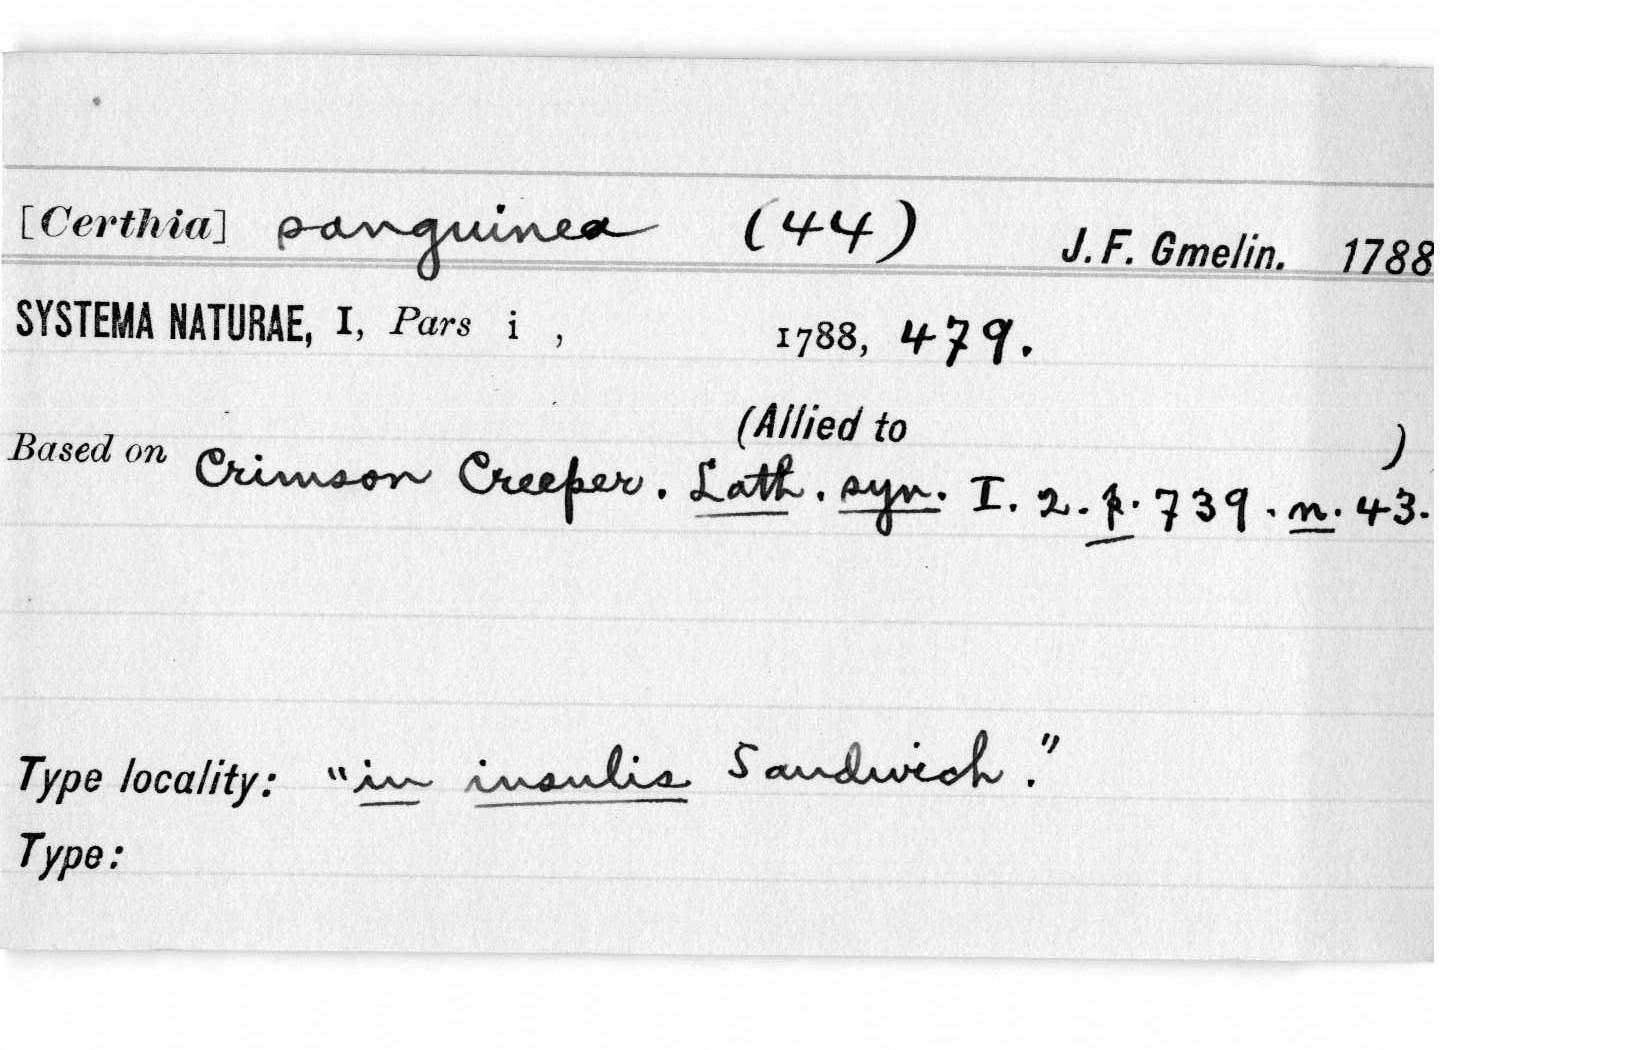 [Certhia] sanguinea (44) J. F. Gmelin. 1788
SYSTEMA NATURAE, I, Pars i , 1788, 479.
(Allied to )
Based on Crimson Creeper. Lath. syn. I. 2. p. 739. n. 43.
Type locality: "in insulis Sandwich."
Type: